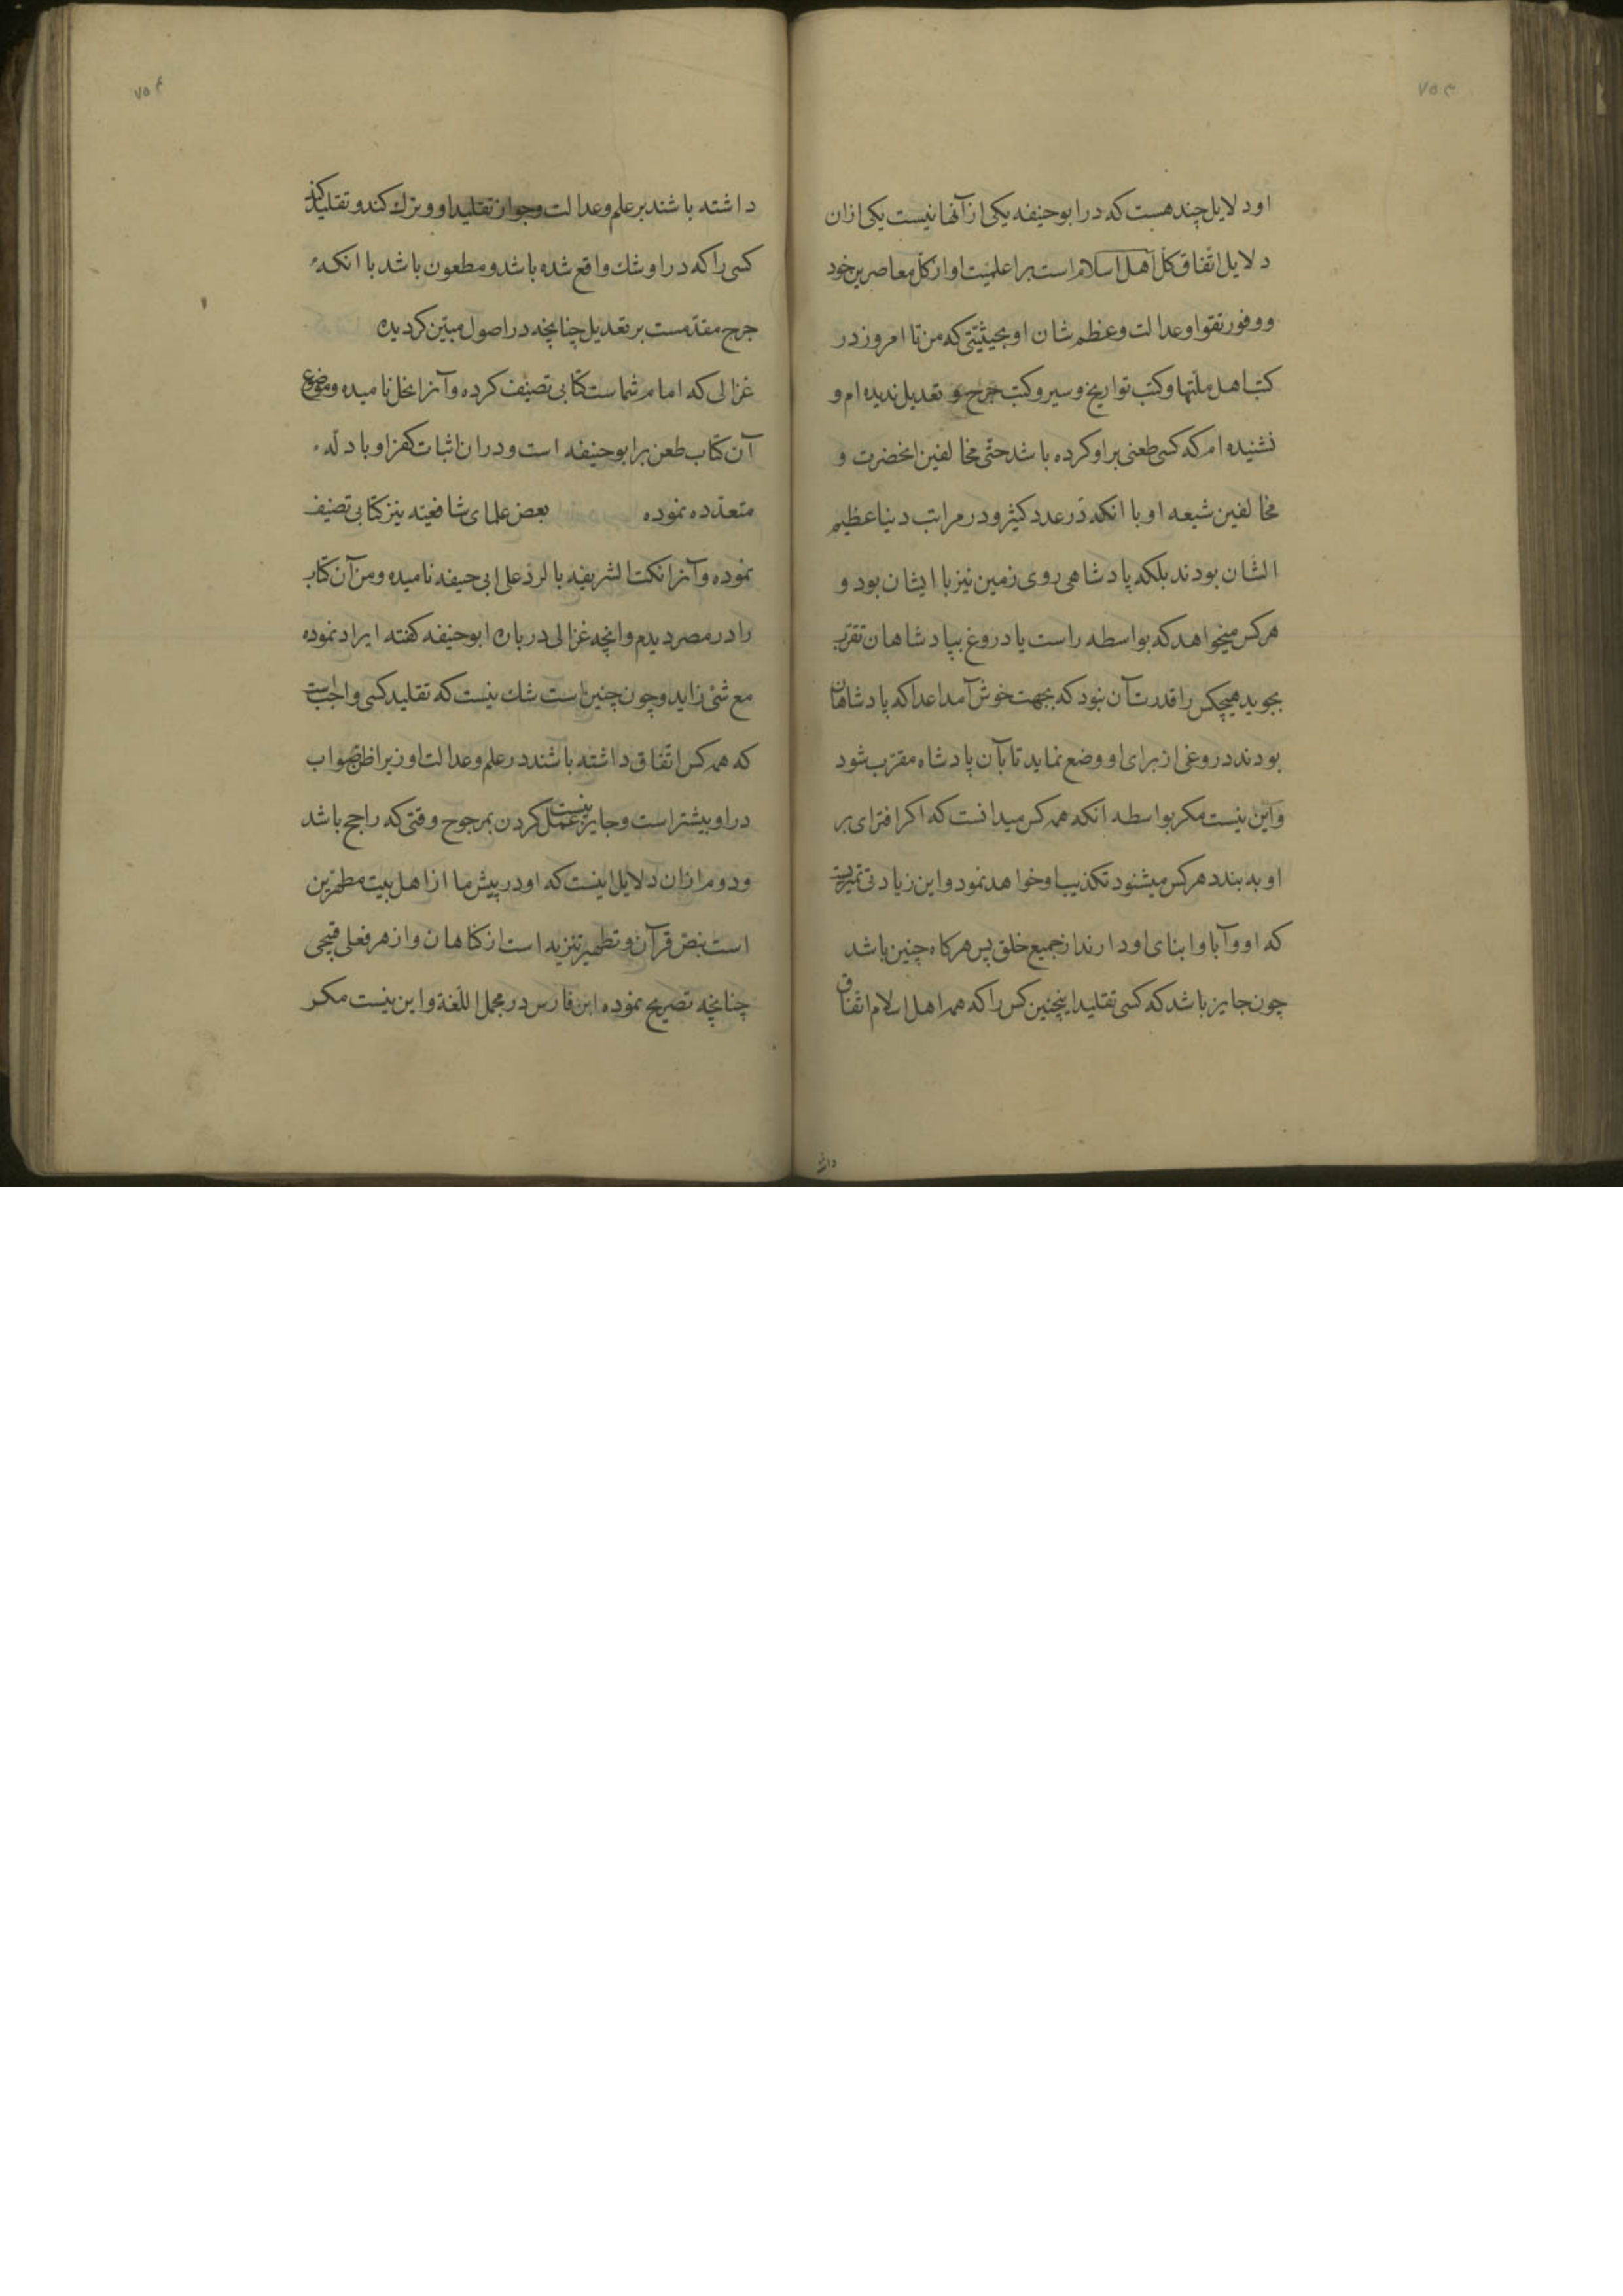 ۷۵۳
او دلایل چند هست که در ابو حنیفه یکی از آنها نیست یکی ازان
دلایل اتفاق کل اهل اسلام است براعلمیّت او از کل معاصرین خود
و وفور تقوا و عدالت و عظم شان او بحیثیّتی که من تا امروز در
کتب اهل ملّتها و کتب تواریخ و سیر و کتب جرح و تعدیل ندیده ام و
نشنیده ام که کسی طعنی بر او کرده باشد حتّی مخالفین انحضرت و
مخالفین شیعه او با انکه در عدد کثیر و در مراتب دنیا عظیم
الشان بودند بلکه پادشاهی روی زمین نیز با ایشان بود و
هر کس میخواهد که بواسطه راست یا دروغ بپادشاهان تقرّب
بجوید هیچکس را قدرت آن نبود که بجهت خوش آمد اعدا که پادشاهان
بودند دروغی از برای او وضع نماید تا بآن پادشاه مقرّب شود
و این نیست مکر بواسطه انکه همه کس میدانست که اکر افترای بر
او به بندد هر کس میشنود تکذیب او خواهد نمود و این زیادتی
که او و آبا و ابنای او دارند از جمیع خلق پس هرکاه چنین باشد
چون جایز باشد که کسی تقلید اینچنین کس را که همه اهل اسلام اتفاق
داشته
۷۵۴
داشته باشند بر علم و عدالت و جواز تقلید او و ترك کند و تقلید کند
کسی را که در او شك واقع شده باشد و مطعون باشد با انکه
جرح مقدّمست بر تعدیل چنانچه در اصول مبیّن کردیده
غزالی که امام شماست کتابی تصنیف کرده و آنرا نخل نامیده و موضوع
آن کتاب طعن بر ابو حنیفه است و دران اثبات کفر او با دلّه
متعدّده نموده بعض علمای شافعیّه نیز کتابی تصنیف
نموده و آنرا نکت الشریفه بالرّد علی ابی حنیفه نامیده و من آن کتاب
را در مصر دیدم و انچه غزالی در باره ابو حنیفه کفته ایراد نموده
مع شئ زاید و چون چنین است شك نیست که تقلید کسی واجبست
که همه کس اتّفاق داشته باشند در علم و عدالت او زیرا ظن صواب
در او بیشتر است و جایز نیست عمل کردن بمرجوح وقتی که راجح باشد
و دوم ازان دلایل اینست که او در پیش ما از اهل بیت مطهّرین
است بنصّ قرآن و تطهیر تنزیه است از کناهان و از هر فعلی قبیحی
چنانچه تصریح نموده ابن فارس در مجمل اللّغة و این نیست مکر